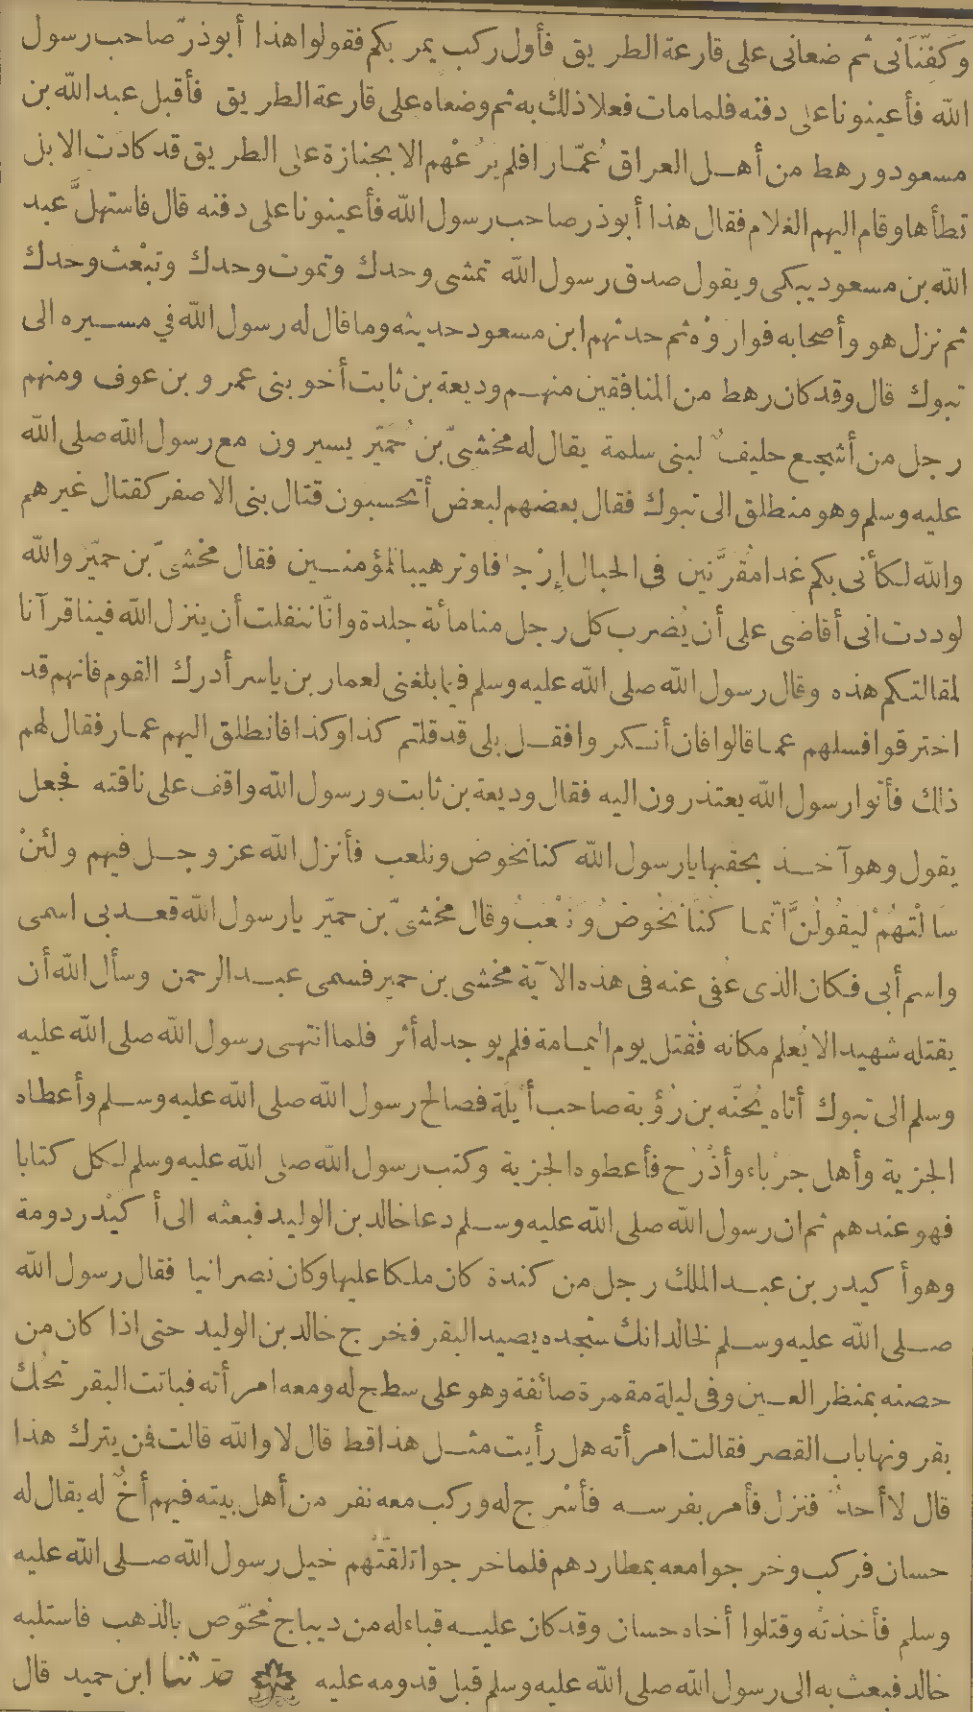 وكفّنّانى ثم ضعانى على قارعة الطريق فأول ركب يمر بكم فقولوا هذا أبو ذرّ صاحب رسول
الله فأعينونا على دفنه فلما مات فعلا ذلك به ثم وضعاه على قارعة الطريق فأقبل عبد الله بن
مسعود ورهط من أهل العراق عُمّارا فلم يَرُعْهم الا بجنازة على الطريق قد كادَت الابل
تطأها وقام اليهم الغلام فقال هذا أبو ذر صاحب رسول الله فأعينونا على دفنه قال فاستهلَّ عبد
الله بن مسعود يبكى ويقول صدق رسول الله تمشى وحدك وتموت وحدك وتبْعث وحدك
ثم نزل هو وأصحابه فواروْه ثم حدثهم ابن مسعود حديثه وما قال له رسول الله في مسيره الى
تبوك قال وقد كان رهط من المنافقين منهم وديعة بن ثابت أخو بنى عمرو بن عوف ومنهم
رجل من أشجع حليفٌ لبنى سلمة يقال له مخشىّ بن حُميّر يسيرون مع رسول الله صلى الله
عليه وسلم وهو منطلق الى تبوك فقال بعضهم لبعض أتحسبون قتال بنى الاصفر كقتال غيرهم
والله لكأنى بكم غدا مُقرَّنين فى الحبال إرْجافا وترهيبا للمؤمنين فقال مخشىّ بن حميّر والله
لوددت انى أقاضى على أن يُضرب كل رجل منا مائة جلدة وانّا ننفلت أن ينزل الله فينا قرآنا
لمقالتكم هذه وقال رسول الله صلى الله عليه وسلم فيما بلغنى لعمار بن ياسر أدرك القوم فانهم قد
اخترقوا فسلهم عما قالوا فان أنكروا فقل بلى قد قلتم كذا وكذا فانطلق اليهم عمار فقال لهم
ذلك فأتوا رسول الله يعتذرون اليه فقال وديعة بن ثابت ورسول الله واقف على ناقته فجعل
يقول وهو آخذ بحقبها يا رسول الله كنا نخوض ونلعب فأنزل الله عز وجل فيهم ولئنْ
سَألْتهُمْ ليقُولُنَّ إنّما كُنّا نَخُوضُ وَنَلْعَبُ وقال مخشىّ بن حميّر يا رسول الله قعد بى اسمى
واسم أبى فكان الذى عُفى عنه فى هذه الآية مخشى بن حمير فسمى عبد الرحمن وسأل الله أن
يقتله شهيدا لا يُعلم مكانه فقُتل يوم اليمامة فلم يوجد له أثر فلما انتهى رسول الله صلى الله عليه
وسلم الى تبوك أتاه يُحنّه بن رُؤبة صاحب أيْلَة فصالح رسول الله صلى الله عليه وسلم وأعطاه
الجزية وأهل جرْباء وأذْرُح فأعطوه الجزية وكتب رسول الله صلى الله عليه وسلم لكل كتابا
فهو عندهم ثم ان رسول الله صلى الله عليه وسلم دعا خالد بن الوليد فبعثه الى أكيْدر دومة
وهو أكيدر بن عبد الملك رجل من كندة كان ملكا عليها وكان نصرانيا فقال رسول الله
صلى الله عليه وسلم لخالد انك ستجده يصيد البقر فخرج خالد بن الوليد حتى اذا كان من
حصنه بمنظر العين وفى ليلة مقمرة صائفة وهو على سطح له ومعه امرأته فباتت البقر تحُكّ
بقرونها باب القصر فقالت امرأته هل رأيت مثل هذا قط قال لا والله قالت فمن يترك هذا
قال لا أحدٌ فنزل فأمر بفرسه فأسْرج له وركب معه نفر من أهل بيته فيهم أخٌ له يقال له
حسان فركب وخرجوا معه بمطاردهم فلما خرجوا تلقّتْهم خيل رسول الله صلى الله عليه
وسلم فأخذتْه وقتلوا أخاه حسان وقد كان عليه قباء له من ديباج مُخوّص بالذهب فاستلبه
خالد فبعث به الى رسول الله صلى الله عليه وسلم قبل قدومه عليه حدثنا ابن حميد قال